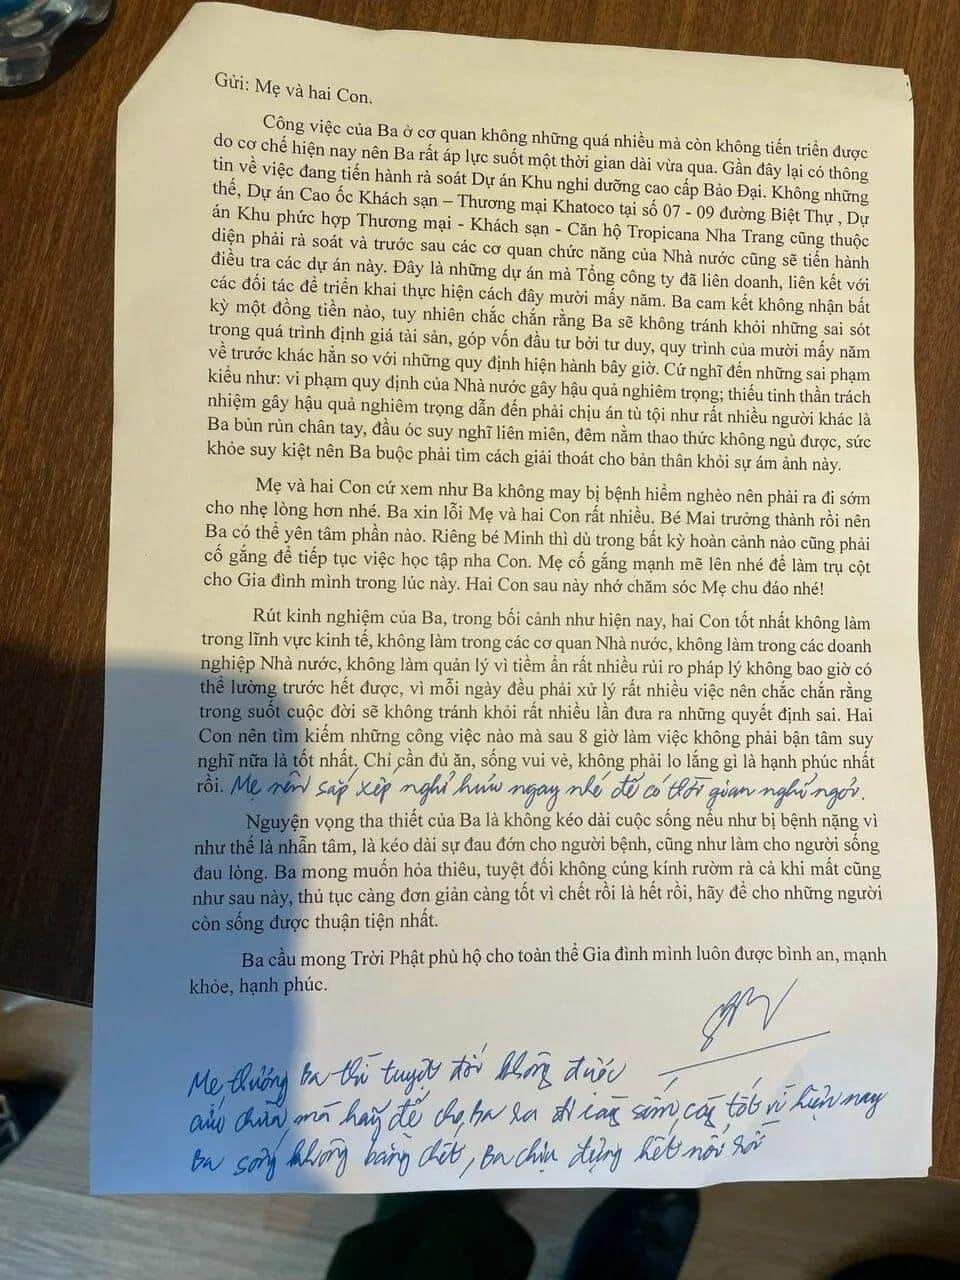 Gửi: Mẹ và hai Con.
Công việc của Ba ở cơ quan không những quá nhiều mà còn không tiến triển được
do cơ chế hiện nay nên Ba rất áp lực suốt một thời gian dài vừa qua. Gần đây lại có thông
tin về việc đang tiến hành rà soát Dự án Khu nghỉ dưỡng cao cấp Bảo Đại. Không những
thế, Dự án Cao ốc Khách sạn – Thương mại Khatoco tại số 07 - 09 đường Biệt Thự , Dự
án Khu phức hợp Thương mại - Khách sạn - Căn hộ Tropicana Nha Trang cũng thuộc
diện phải rà soát và trước sau các cơ quan chức năng của Nhà nước cũng sẽ tiến hành
điều tra các dự án này. Đây là những dự án mà Tổng công ty đã liên doanh, liên kết với
các đối tác để triển khai thực hiện cách đây mười mấy năm. Ba cam kết không nhận bất
kỳ một đồng tiền nào, tuy nhiên chắc chắn rằng Ba sẽ không tránh khỏi những sai sót
trong quá trình định giá tài sản, góp vốn đầu tư bởi tư duy, quy trình của mười mấy năm
về trước khác hẳn so với những quy định hiện hành bây giờ. Cứ nghĩ đến những sai phạm
kiểu như: vi phạm quy định của Nhà nước gây hậu quả nghiêm trọng; thiếu tinh thần trách
nhiệm gây hậu quả nghiêm trọng dẫn đến phải chịu án tù tội như rất nhiều người khác là
Ba bủn rủn chân tay, đầu óc suy nghĩ liên miên, đêm nằm thao thức không ngủ được, sức
khỏe suy kiệt nên Ba buộc phải tìm cách giải thoát cho bản thân khỏi sự ám ảnh này.
Mẹ và hai Con cứ xem như Ba không may bị bệnh hiểm nghèo nên phải ra đi sớm
cho nhẹ lòng hơn nhé. Ba xin lỗi Mẹ và hai Con rất nhiều. Bé Mai trưởng thành rồi nên
Ba có thể yên tâm phần nào. Riêng bé Minh thì dù trong bất kỳ hoàn cảnh nào cũng phải
cố gắng để tiếp tục việc học tập nha Con. Mẹ cố gắng mạnh mẽ lên nhé để làm trụ cột
cho Gia đình mình trong lúc này. Hai Con sau này nhớ chăm sóc Mẹ chu đáo nhé!
Rút kinh nghiệm của Ba, trong bối cảnh như hiện nay, hai Con tốt nhất không làm
trong lĩnh vực kinh tế, không làm trong các cơ quan Nhà nước, không làm trong các doanh
nghiệp Nhà nước, không làm quản lý vì tiềm ẩn rất nhiều rủi ro pháp lý không bao giờ có
thể lường trước hết được, vì mỗi ngày đều phải xử lý rất nhiều việc nên chắc chắn rằng
trong suốt cuộc đời sẽ không tránh khỏi rất nhiều lần đưa ra những quyết định sai. Hai
Con nên tìm kiếm những công việc nào mà sau 8 giờ làm việc không phải bận tâm suy
nghĩ nữa là tốt nhất. Chỉ cần đủ ăn, sống vui vẻ, không phải lo lắng gì là hạnh phúc nhất
rồi. Mẹ nên sắp xếp nghỉ hưu ngay nhé để có thời gian nghỉ ngơi.
Nguyện vọng tha thiết của Ba là không kéo dài cuộc sống nếu như bị bệnh nặng vì
như thế là nhẫn tâm, là kéo dài sự đau đớn cho người bệnh, cũng như làm cho người sống
đau lòng. Ba mong muốn hỏa thiêu, tuyệt đối không cúng kính rườm rà cả khi mất cũng
như sau này, thủ tục càng đơn giản càng tốt vì chết rồi là hết rồi, hãy để cho những người
còn sống được thuận tiện nhất.
Ba cầu mong Trời Phật phù hộ cho toàn thể Gia đình mình luôn được bình an, mạnh
khỏe, hạnh phúc.
Mẹ thương Ba thì tuyệt đối không được
cứu chữa, mà hãy để cho Ba ra đi càng sớm, càng tốt vì hiện nay
Ba sống không bằng chết, Ba chịu đựng hết nổi rồi